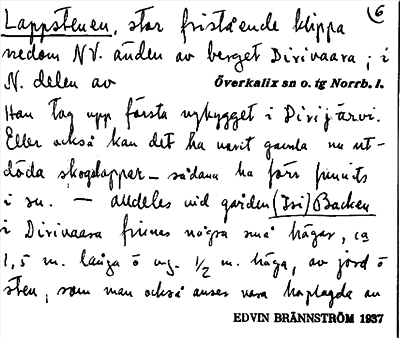 Lappstenen, stor fristående klippa (6
nedom NV. änden av berget Dirivaara; i
N. delen av Överkalix sn o. tg Norrb. l.
Han tog upp första nybygget i Dirijärvi.
Eller också kan det ha varit gamla nu ut-
döda skogslapper – sådana ha förr funnits
i sn. — Alldeles vid gården (Isi) Backen
i Dirivaara finnes några små högar, ca
1,5 m. långa o ung. 1/2 m. höga, av jord o
sten, som man också anses vara hoplagda av
EDVIN BRÄNNSTRÖM 1937